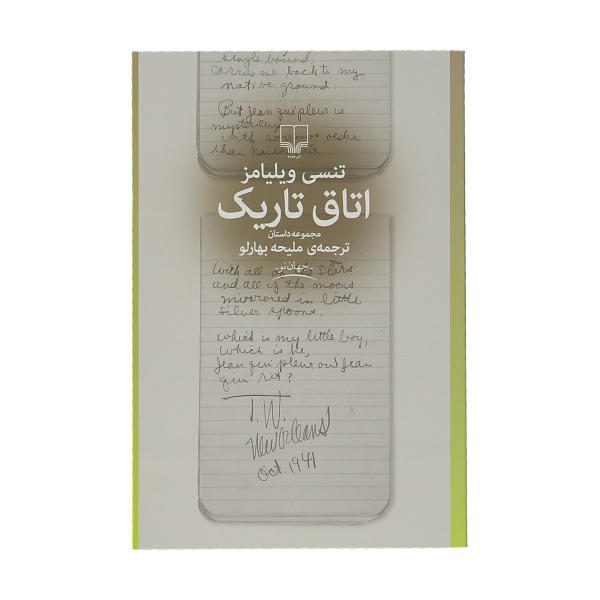 single bound,
carries me back to my
native ground.
But Jean qui pleur is
mysterious
with sorrows older
than
نشر چشمه
تنسی ویلیامز
اتاق تاریک
مجموعه داستان
ترجمه‌ی ملیحه بهارلو
جهان نو
with all of the stars
and all of the moons
mirrored in little
silver spoons.
which is my little boy,
which is he,
Jean qui pleur ou Jean
qui rit?
T.W.
New Orleans
Oct. 1941